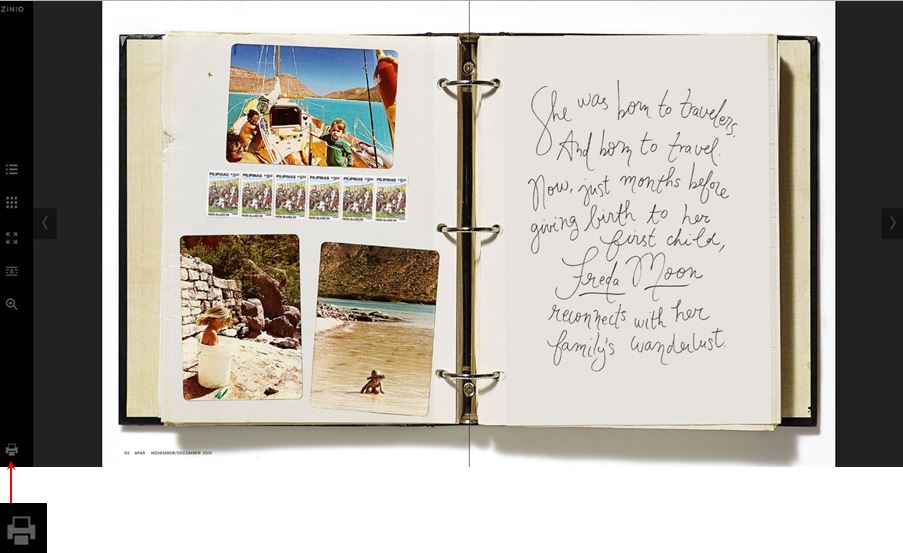 ZINIO
PILIPINAS PILIPINAS PILIPINAS PILIPINAS PILIPINAS PILIPINAS
She was born to travelers.
And born to travel.
Now, just months before
giving birth to her
first child,
Freda Moon
reconnects with her
family's wanderlust.
112 AFAR NOVEMBER/DECEMBER 2015